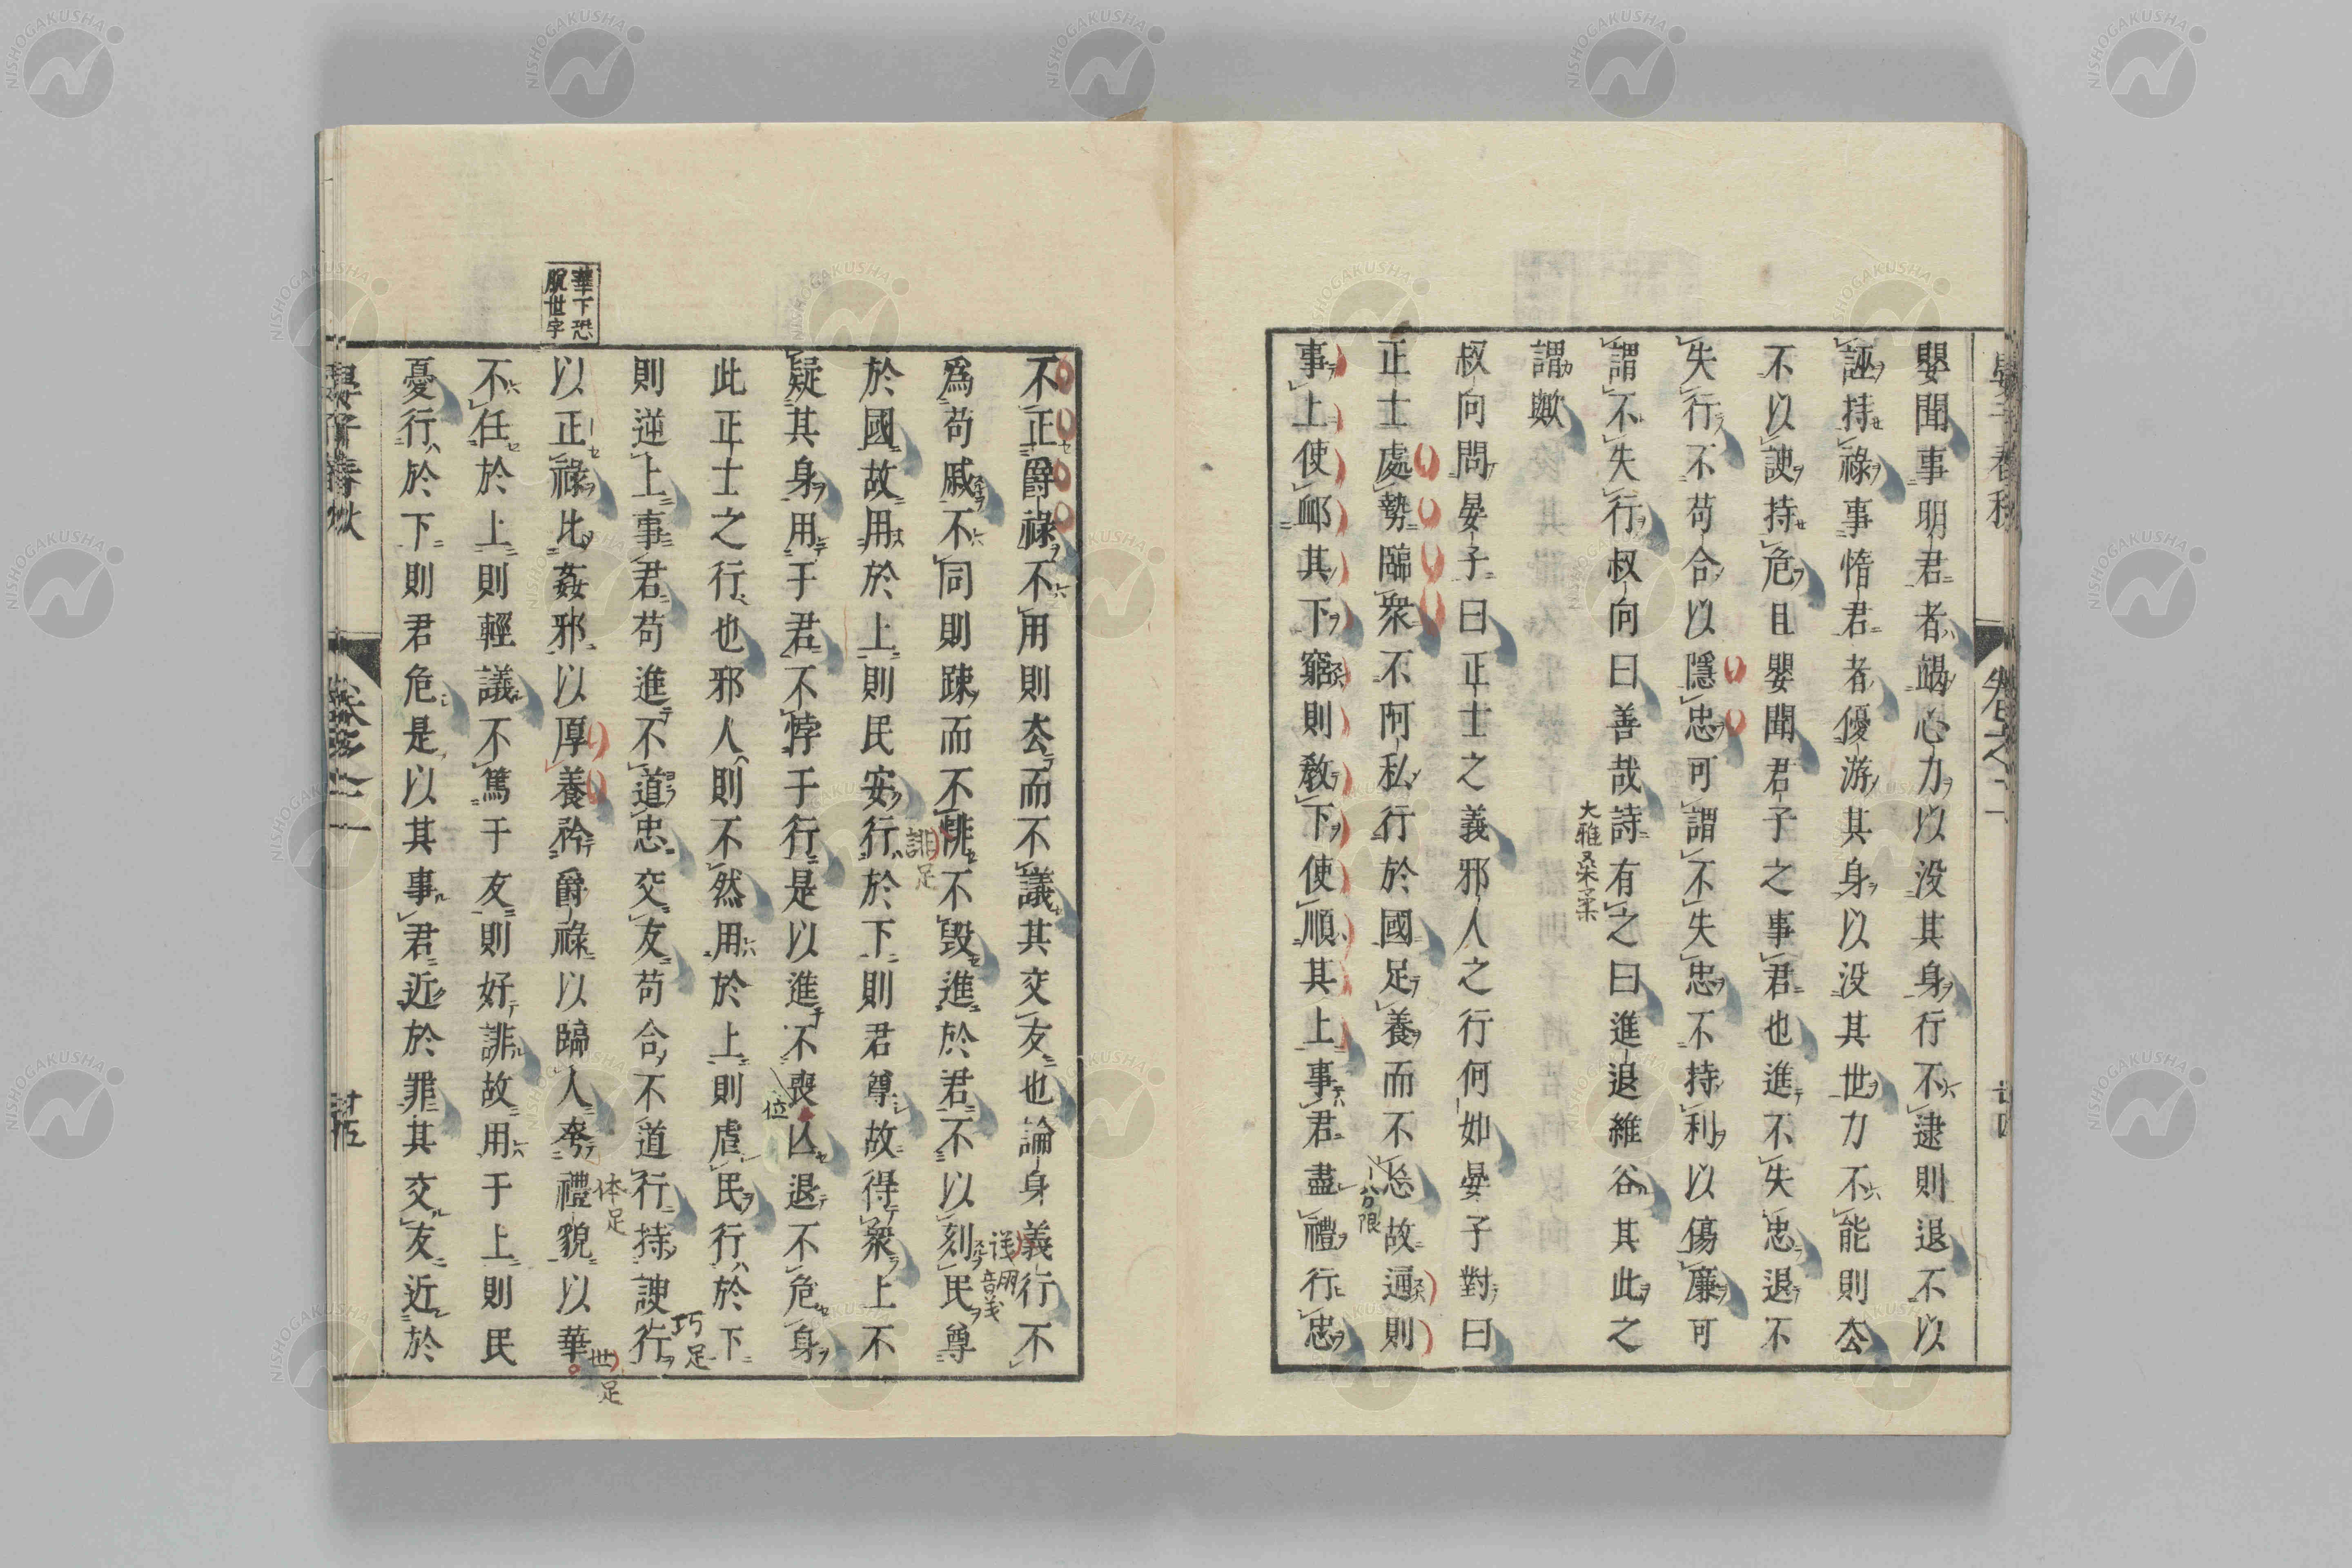 嬰聞事明君者竭心力以没其身行不逮則退不以
誣持祿事惰君者優游其身以没其世力不能則去
不以諛持危且嬰聞君子之事君也進不失忠退不
失行不苟合以隱忠可謂不失忠不持利以傷廉可
謂不失行叔向曰善哉詩有之曰進退維谷其此之
大雅桑柔
謂歟
叔向問晏子曰正士之義邪人之行何如晏子對曰
正士處勢臨衆不阿私行於國足養而不忘故通則
分限
事上使卹其下窮則敎下使順其上事君盡禮行忠
不正爵祿不用則去而不議其交友也論身義行不
為苟戚不同則疎而不悱不毀進於君不以刻民尊
誹足
於國故用於上則民安行於下則君尊故得衆上不
疑其身用于君不悖于行是以進不喪亾退不危身
位
此正士之行也邪人則不然用於上則虐民行於下
則逆上事君苟進不道忠交友苟合不道行持諛行
巧足
体足
以正祿比姦邪以厚養矜爵祿以臨人夸禮貌以華
世足
華下恐
脫世字
不任於上則輕議不篤于友則好誹故用于上則民
憂行於下則君危是以其事君近於罪其交友近於
晏子春秋
卷之二